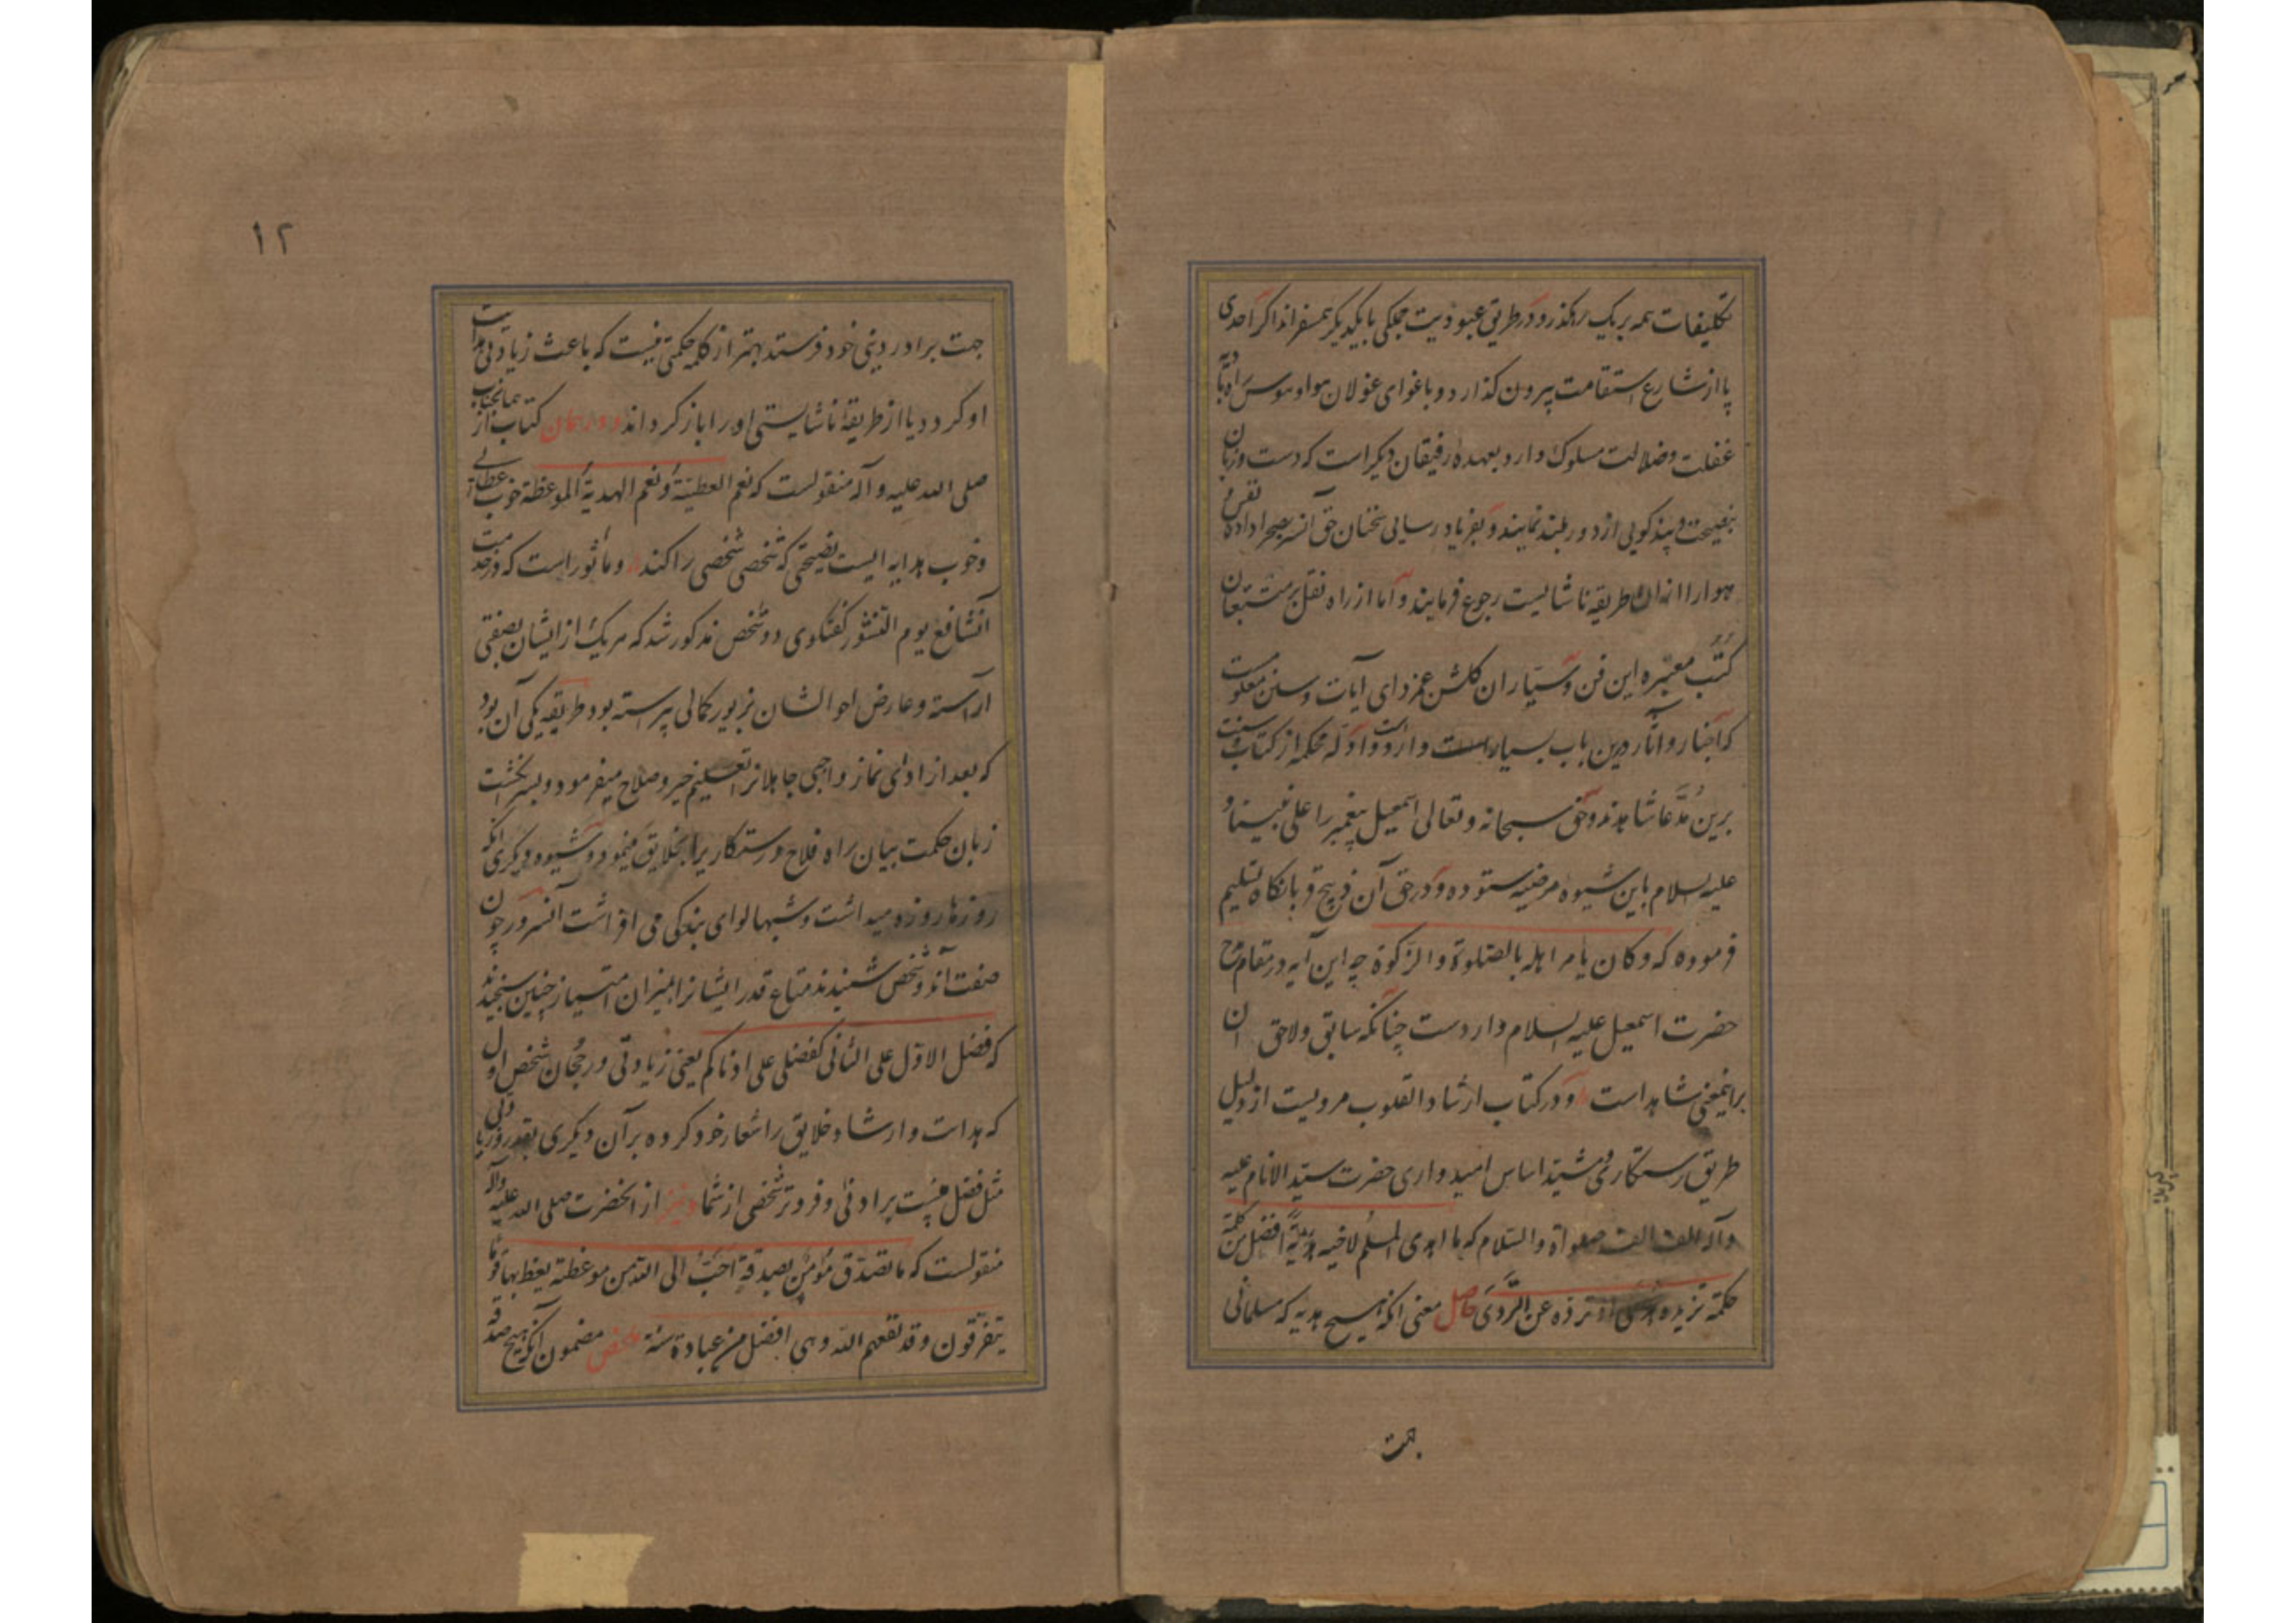 تکلیفات همه بر یک رهگذر و در طریق عبودیت جملگی با یکدیگر همسفرند اکر احدی
پا از شارع استقامت بیرون گذارد و باغوای غولان هوا و هوس راه بادیه
غفلت و ضلالت مسلوک دارد بعهده رفیقان دیکر است که دست و زبان
بنصیحت و پند کویی از دور بلند نمایند و بفریاد رسایی سخنان حق آنسر بصحرا داده نفس و
هوا را از آن طریقه ناشایست رجوع فرمایند و اما از راه نقل بر متتبعان
کتب معتبره این فن و سیاران کلشن غمزدای آیات و سنن معلومست
که اخبار و آثار درین باب بسیار است وارد و ادله محکمه از کتاب و سنت
برین مدعا شاهدند و حق سبحانه و تعالی اسمعیل پیغمبر را علی نبینا و
علیه السلام باین شیوه مرضیه ستوده و در حق آن ذبیح قربانکاه تسلیم
فرموده که و کان یامر اهله بالصلوة والزکوة چه این آیه در مقام مدح
حضرت اسمعیل علیه السلام واردست چنانکه سابق و لاحق آن
براینمعنی شاهد است و در کتاب ارشاد القلوب مرویست از دلیل
طریق رستکاری و مشید اساس امیدواری حضرت سید الانام علیه
وآله الف الف صلواة والسلام که ما اهدی المسلم لاخیه هدیة افضل من کلمة
حکمة تزیده هدی او ترده عن الردی حاصل معنی آنکه هیچ هدیه که مسلمانی
جهت
۱۲
جهت برادر دینی خود فرستد بهتر از کلمه حکمتی نیست که باعث زیادتی هدایت
او کردد یا از طریقه ناشایستی او را باز کرداند و در همان کتاب از همانجناب
صلی الله علیه و آله منقولست که نعم العطیة و نعم الهدیة الموعظة خوب عطائی
و خوب هدایه ایست نصیحتی که شخصی شخصی را کند و ماثور است که در خدمت
آنشافع یوم النشور کفتکوی دو شخص مذکور شد که هر یک از ایشان بصفتی
آراسته و عارض احوالشان بزیور کمالی پیراسته بود طریقه یکی آن بود
که بعد از ادای نماز واجبی جاهلانرا تعلیم خیر و صلاح میفرمود و بسرانکشت
زبان حکمت بیان راه فلاح و رستکاریرا بخلایق مینمود و شیوه دیکری آنکه
روزها روزه میداشت و شبها لوای بندکی می افراشت آنسرور چون
صفت آندو شخص شنیدند متاع قدر ایشانرا بمیزان امتیاز چنین سنجیدند
که فضل الاول علی الثانی کفضلی علی ادناکم یعنی زیادتی و رجحان شخص اول
که هدایت و ارشاد خلایق را شعار خود کرده بر آن دیکری بقدر و زیادتی
مثل فضل منست بر ادنی و فروتر شخصی از شما و نیز از انحضرت صلی الله علیه وآله
منقولست که ما تصدق مؤمن بصدقة احب الی الله من موعظة یعظ بها قوما
یتفرقون وقد نفعهم الله وهی افضل من عبادة سنة ملخص مضمون آنکه هیچ صدقه